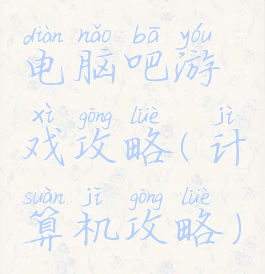 diàn nǎo bā yóu
电脑吧游
xì gōng lüè jì
戏攻略(计
suàn jī gōng lüè
算机攻略)